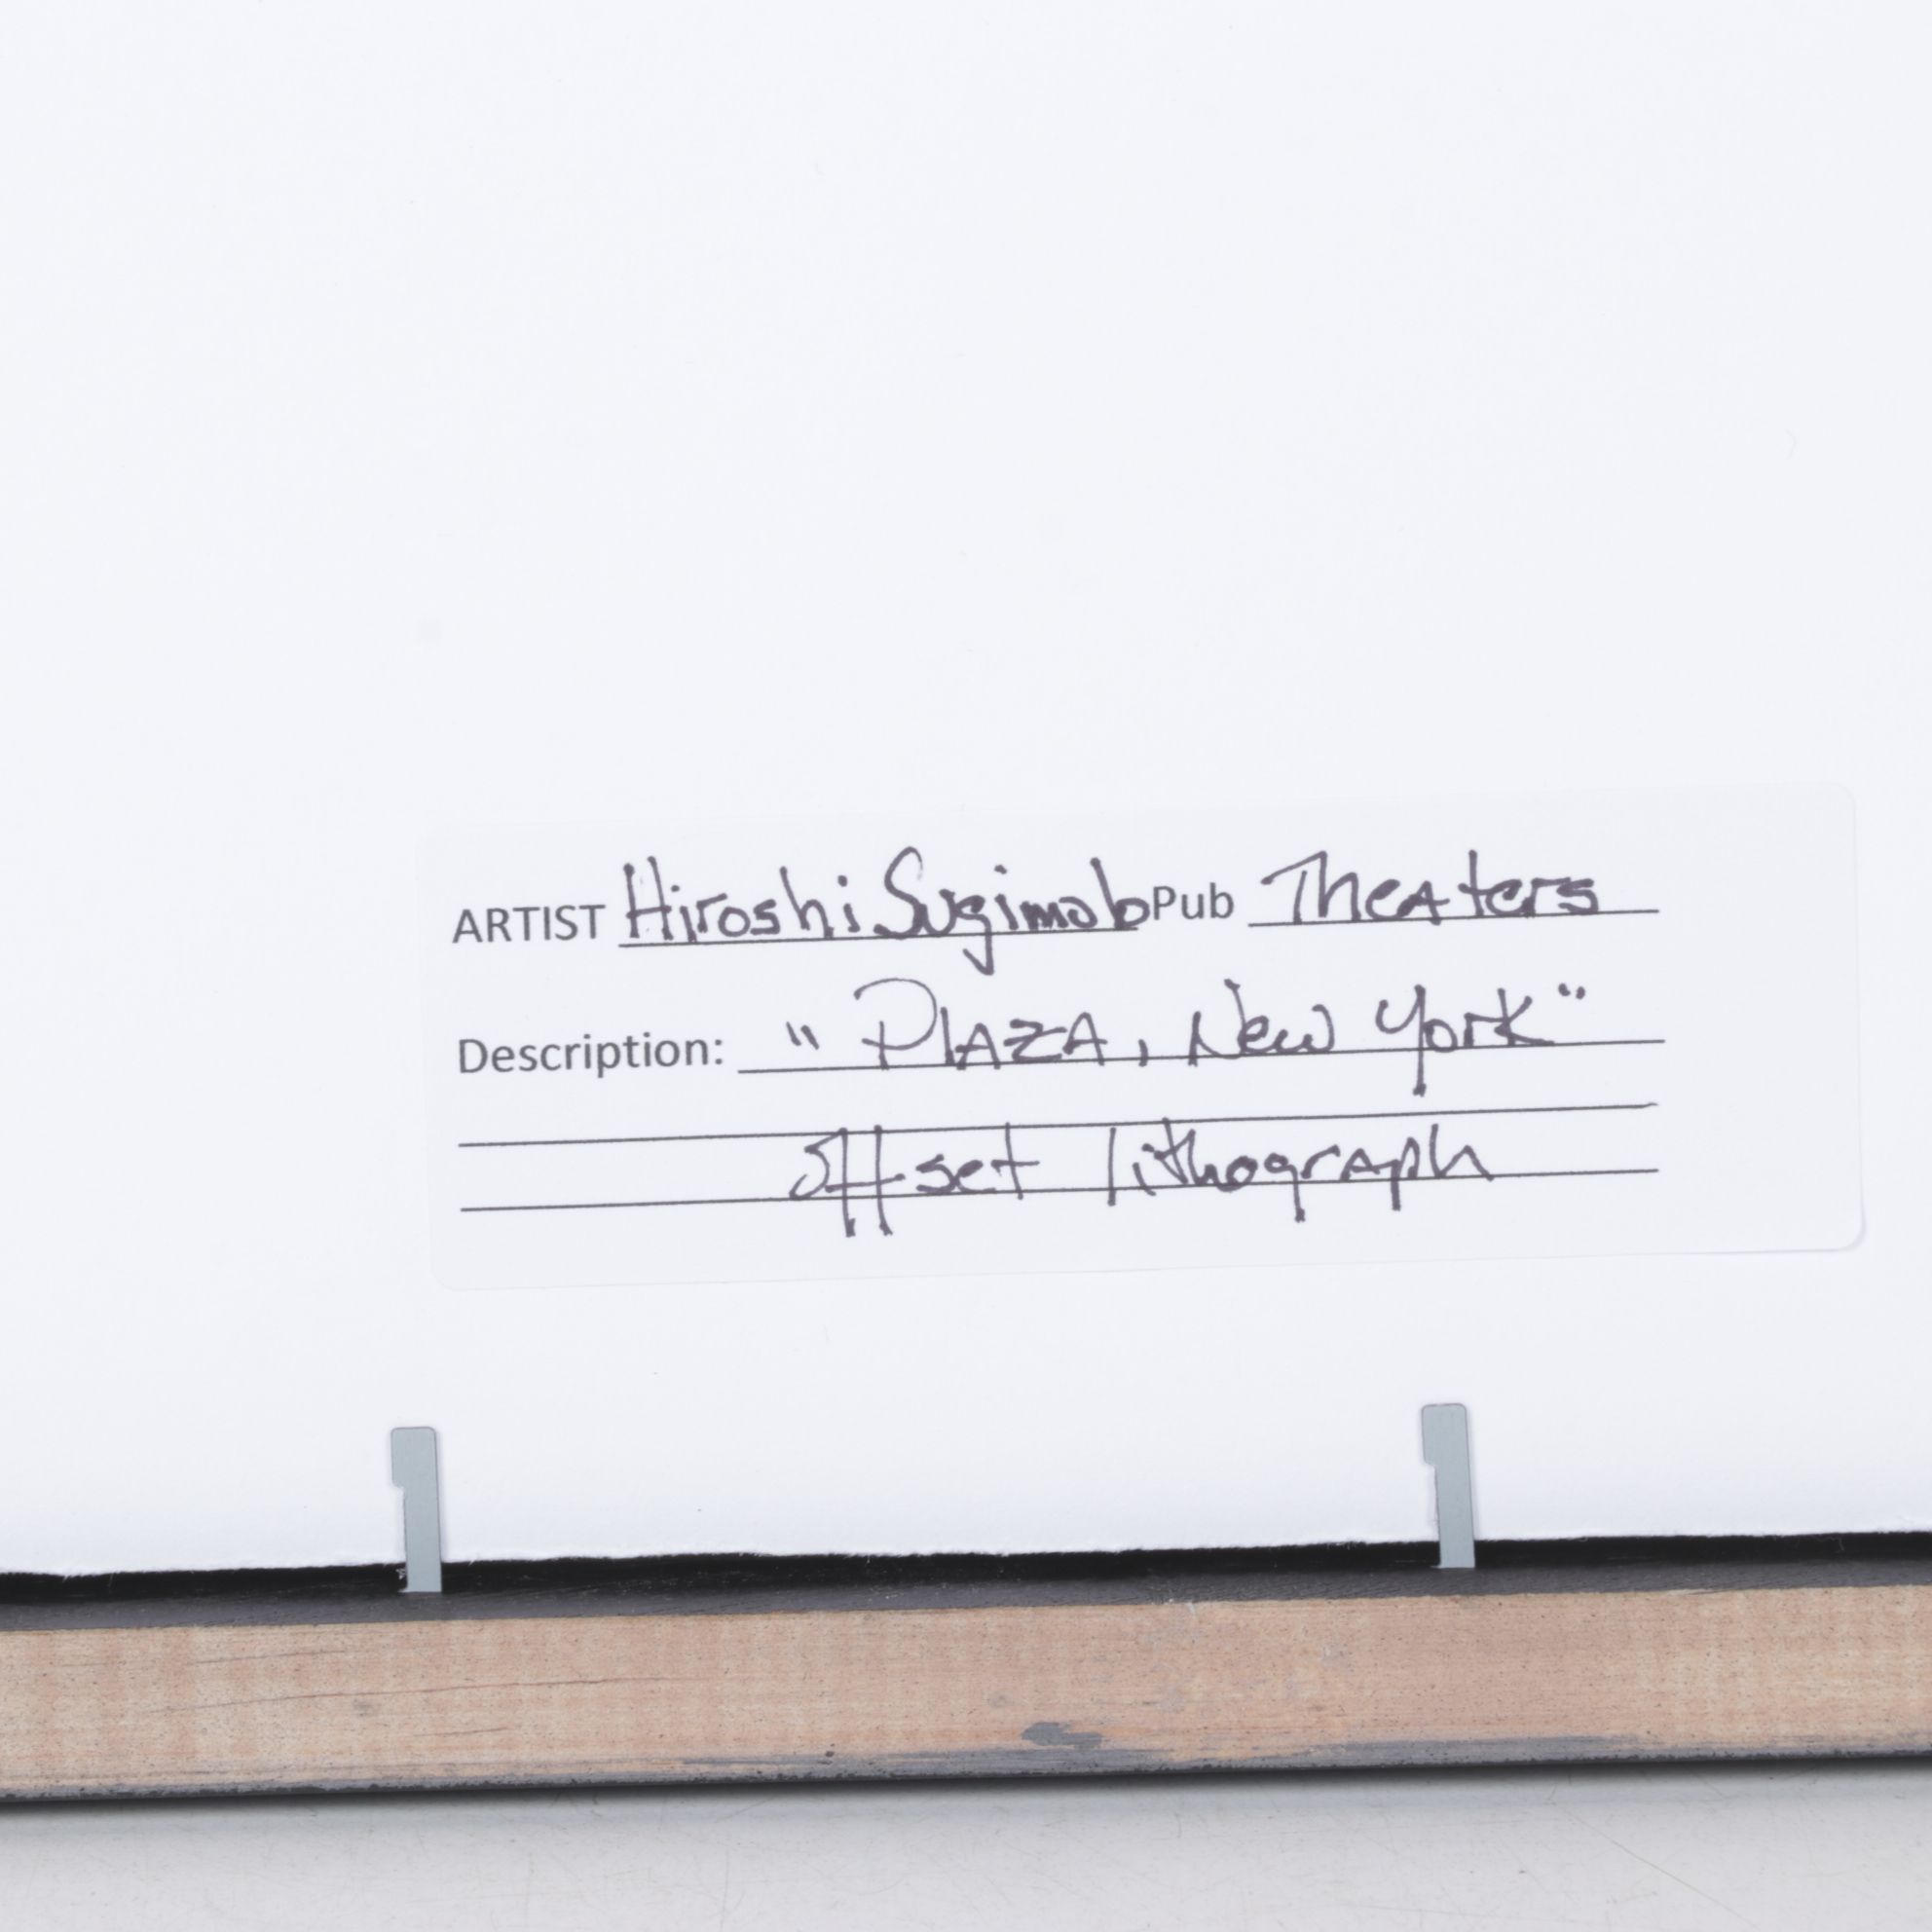 ARTIST Hiroshi Sugimoto Pub Theaters
Description: "PLAZA, New York"
offset lithograph